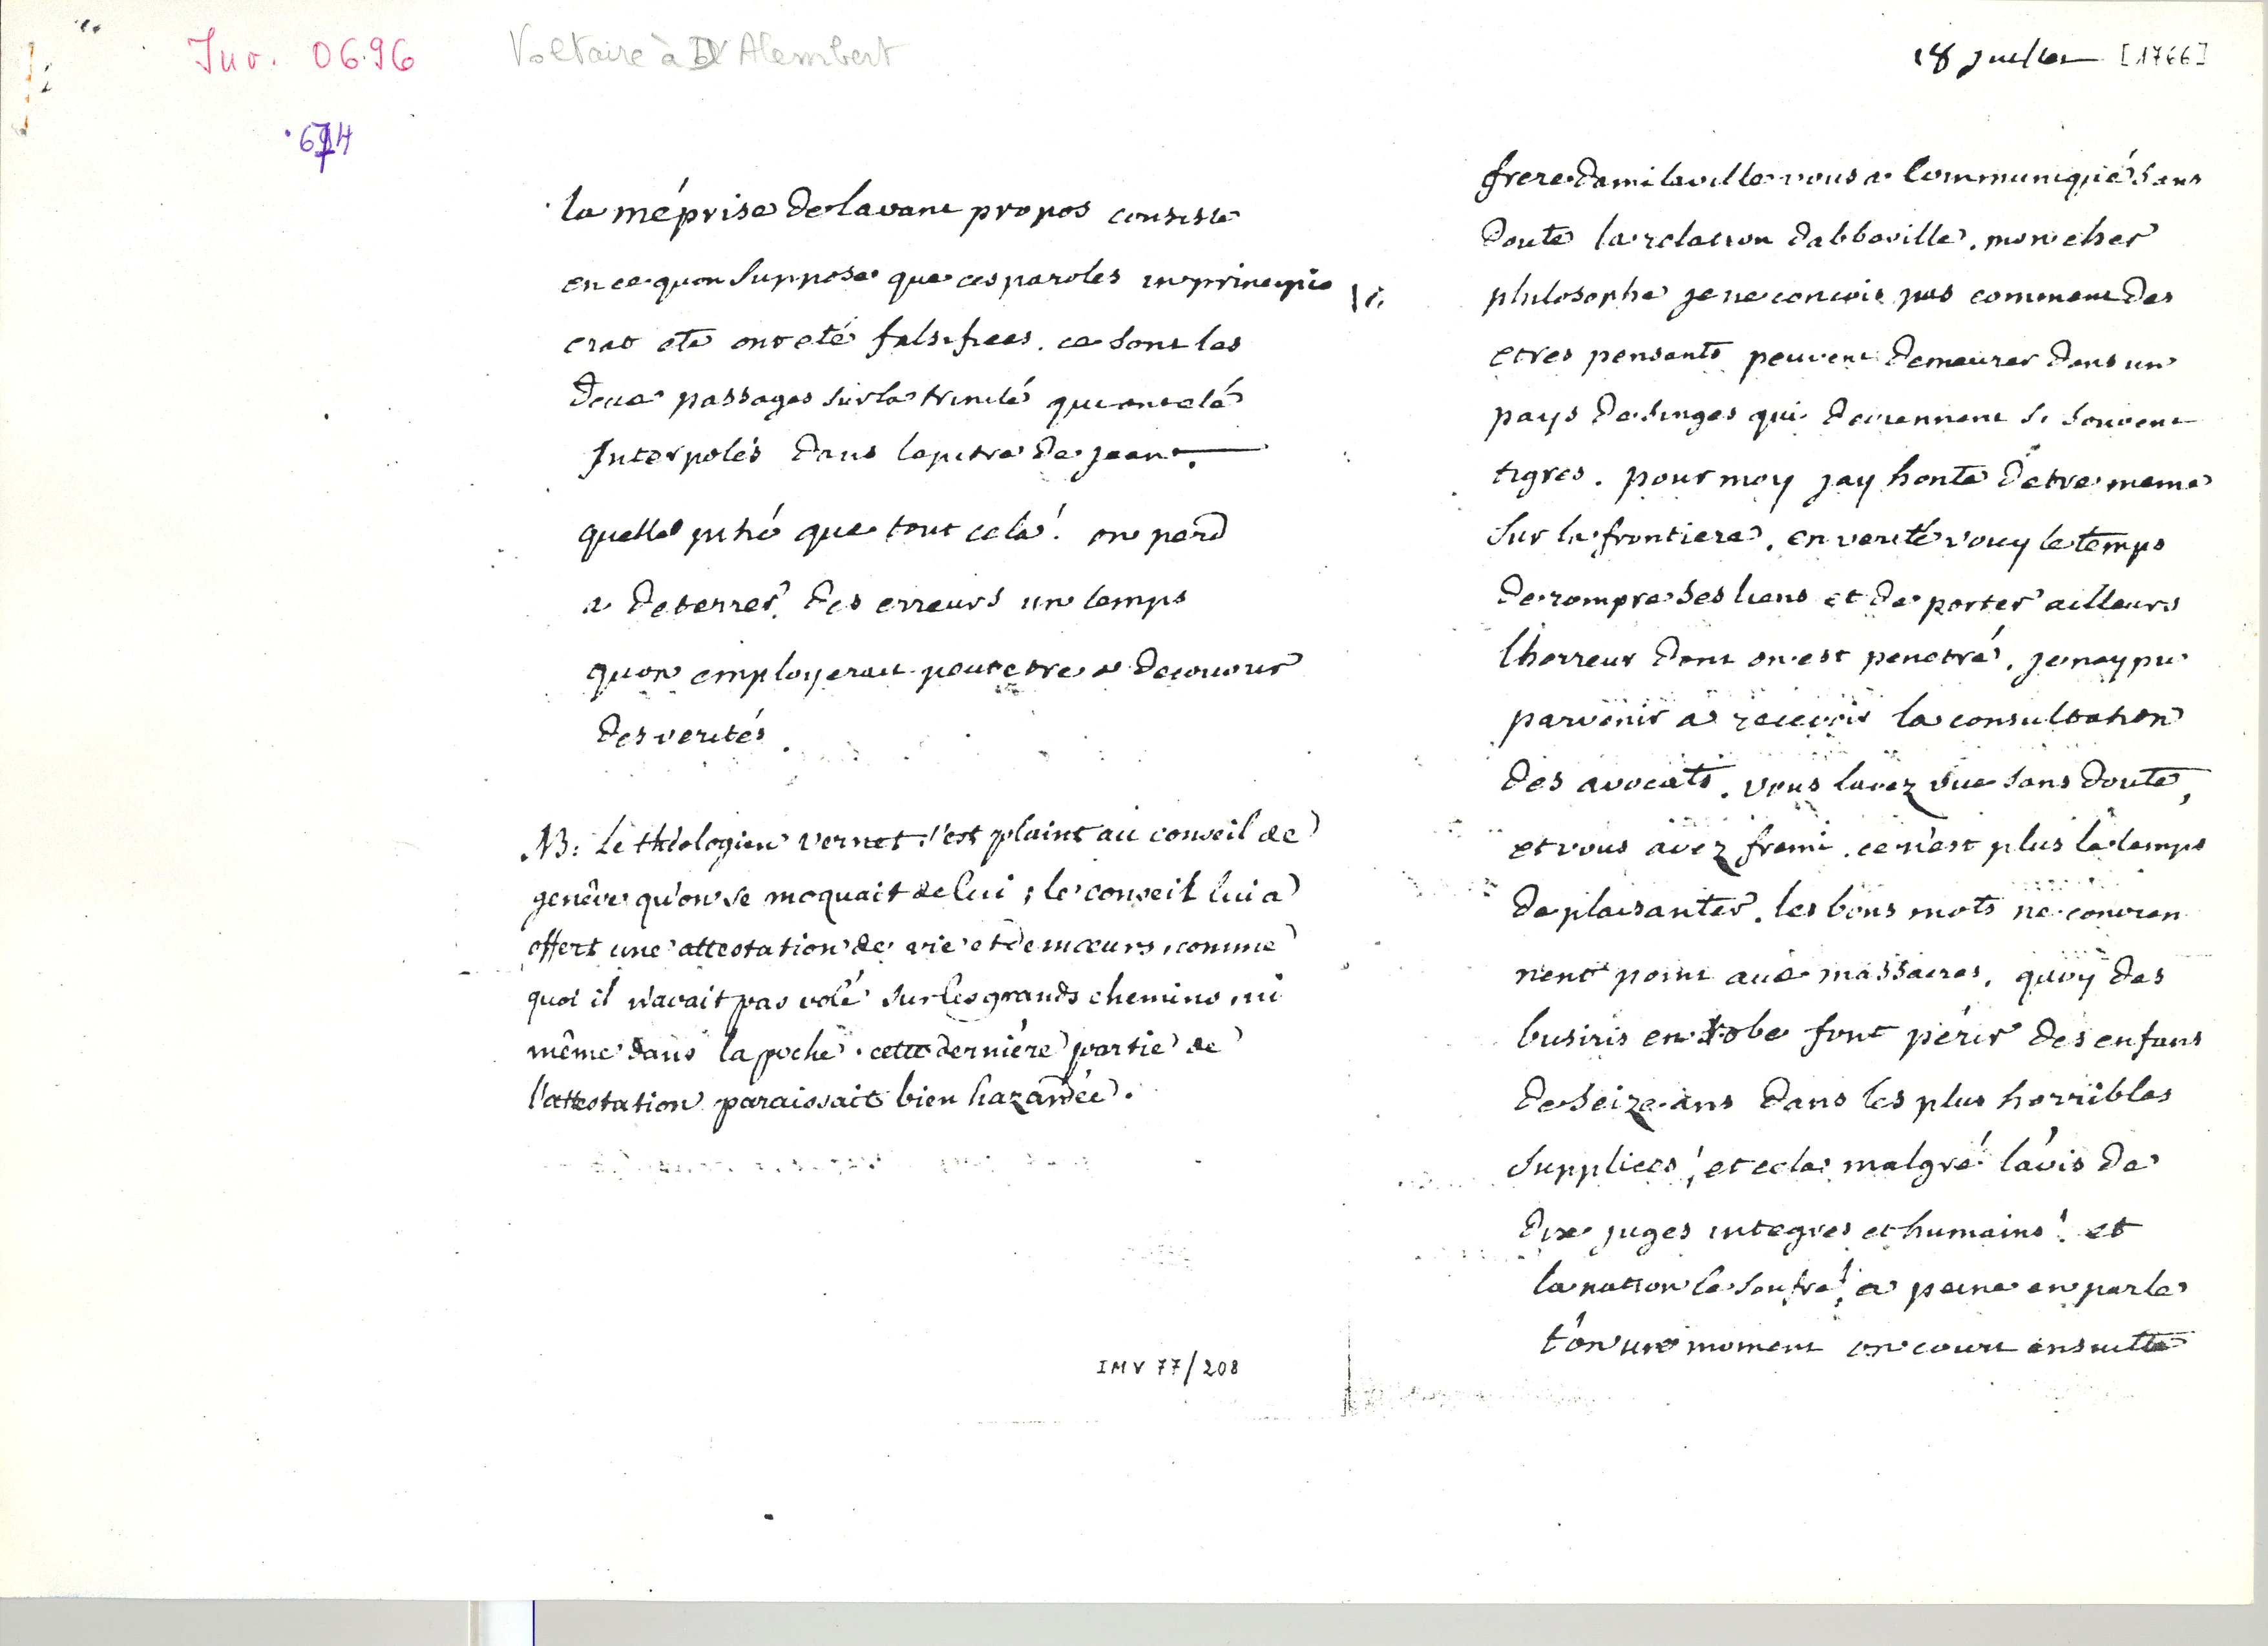 Inv. 0696
Voltaire à D'Alembert
18 juillet [1766]
674
la méprise de lavant propos consiste
en ce quon suppose que ces paroles in principio
erat etc ont eté falsifiees. ce sont les
deux passages sur la trinité qui ont eté
Interpolés dans lepitre de jean.
quelle pitié que tout cela! on perd
a deterrer des erreurs un temps
quon employerait peutetre a decouvrir
des verités.
NB: Le théologien vernet s'est plaint au conseil de
genêve qu'on se moquait de lui; le conseil lui a
offert une attestation de vie et de mœurs, comme
quoi il n'avait pas volé sur les grands chemins, ni
même dans la poche. cette derniére partie de
l'attestation paraissait bien hazardée.
IMV 77/208
frere damilaville vous a communiqué sans
doute la relation dabbeville. mon cher
philosophe je ne concois pas comment des
etres pensants peuvent demeurer dans un
pays de singes qui deviennent si souvent
tigres. pour moy jay honte detre meme
sur la frontiere. en verité voicy le temps
de rompre ses liens et de porter ailleurs
lhorreur dont on est penetré. je nay pu
parvenir a recevoir la consultation
des avocats. vous lavez vue sans doute,
et vous avez fremi. ce n'est plus le temps
de plaisanter. les bons mots ne convien
nent point aux massacres. quoy des
busiris en robe font périr des enfans
de seize ans dans les plus horribles
supplices! et cela malgré l'avis de
dix juges integres et humains! et
la nation le soufre! a peine en parle
t'on un moment on court ensuitte